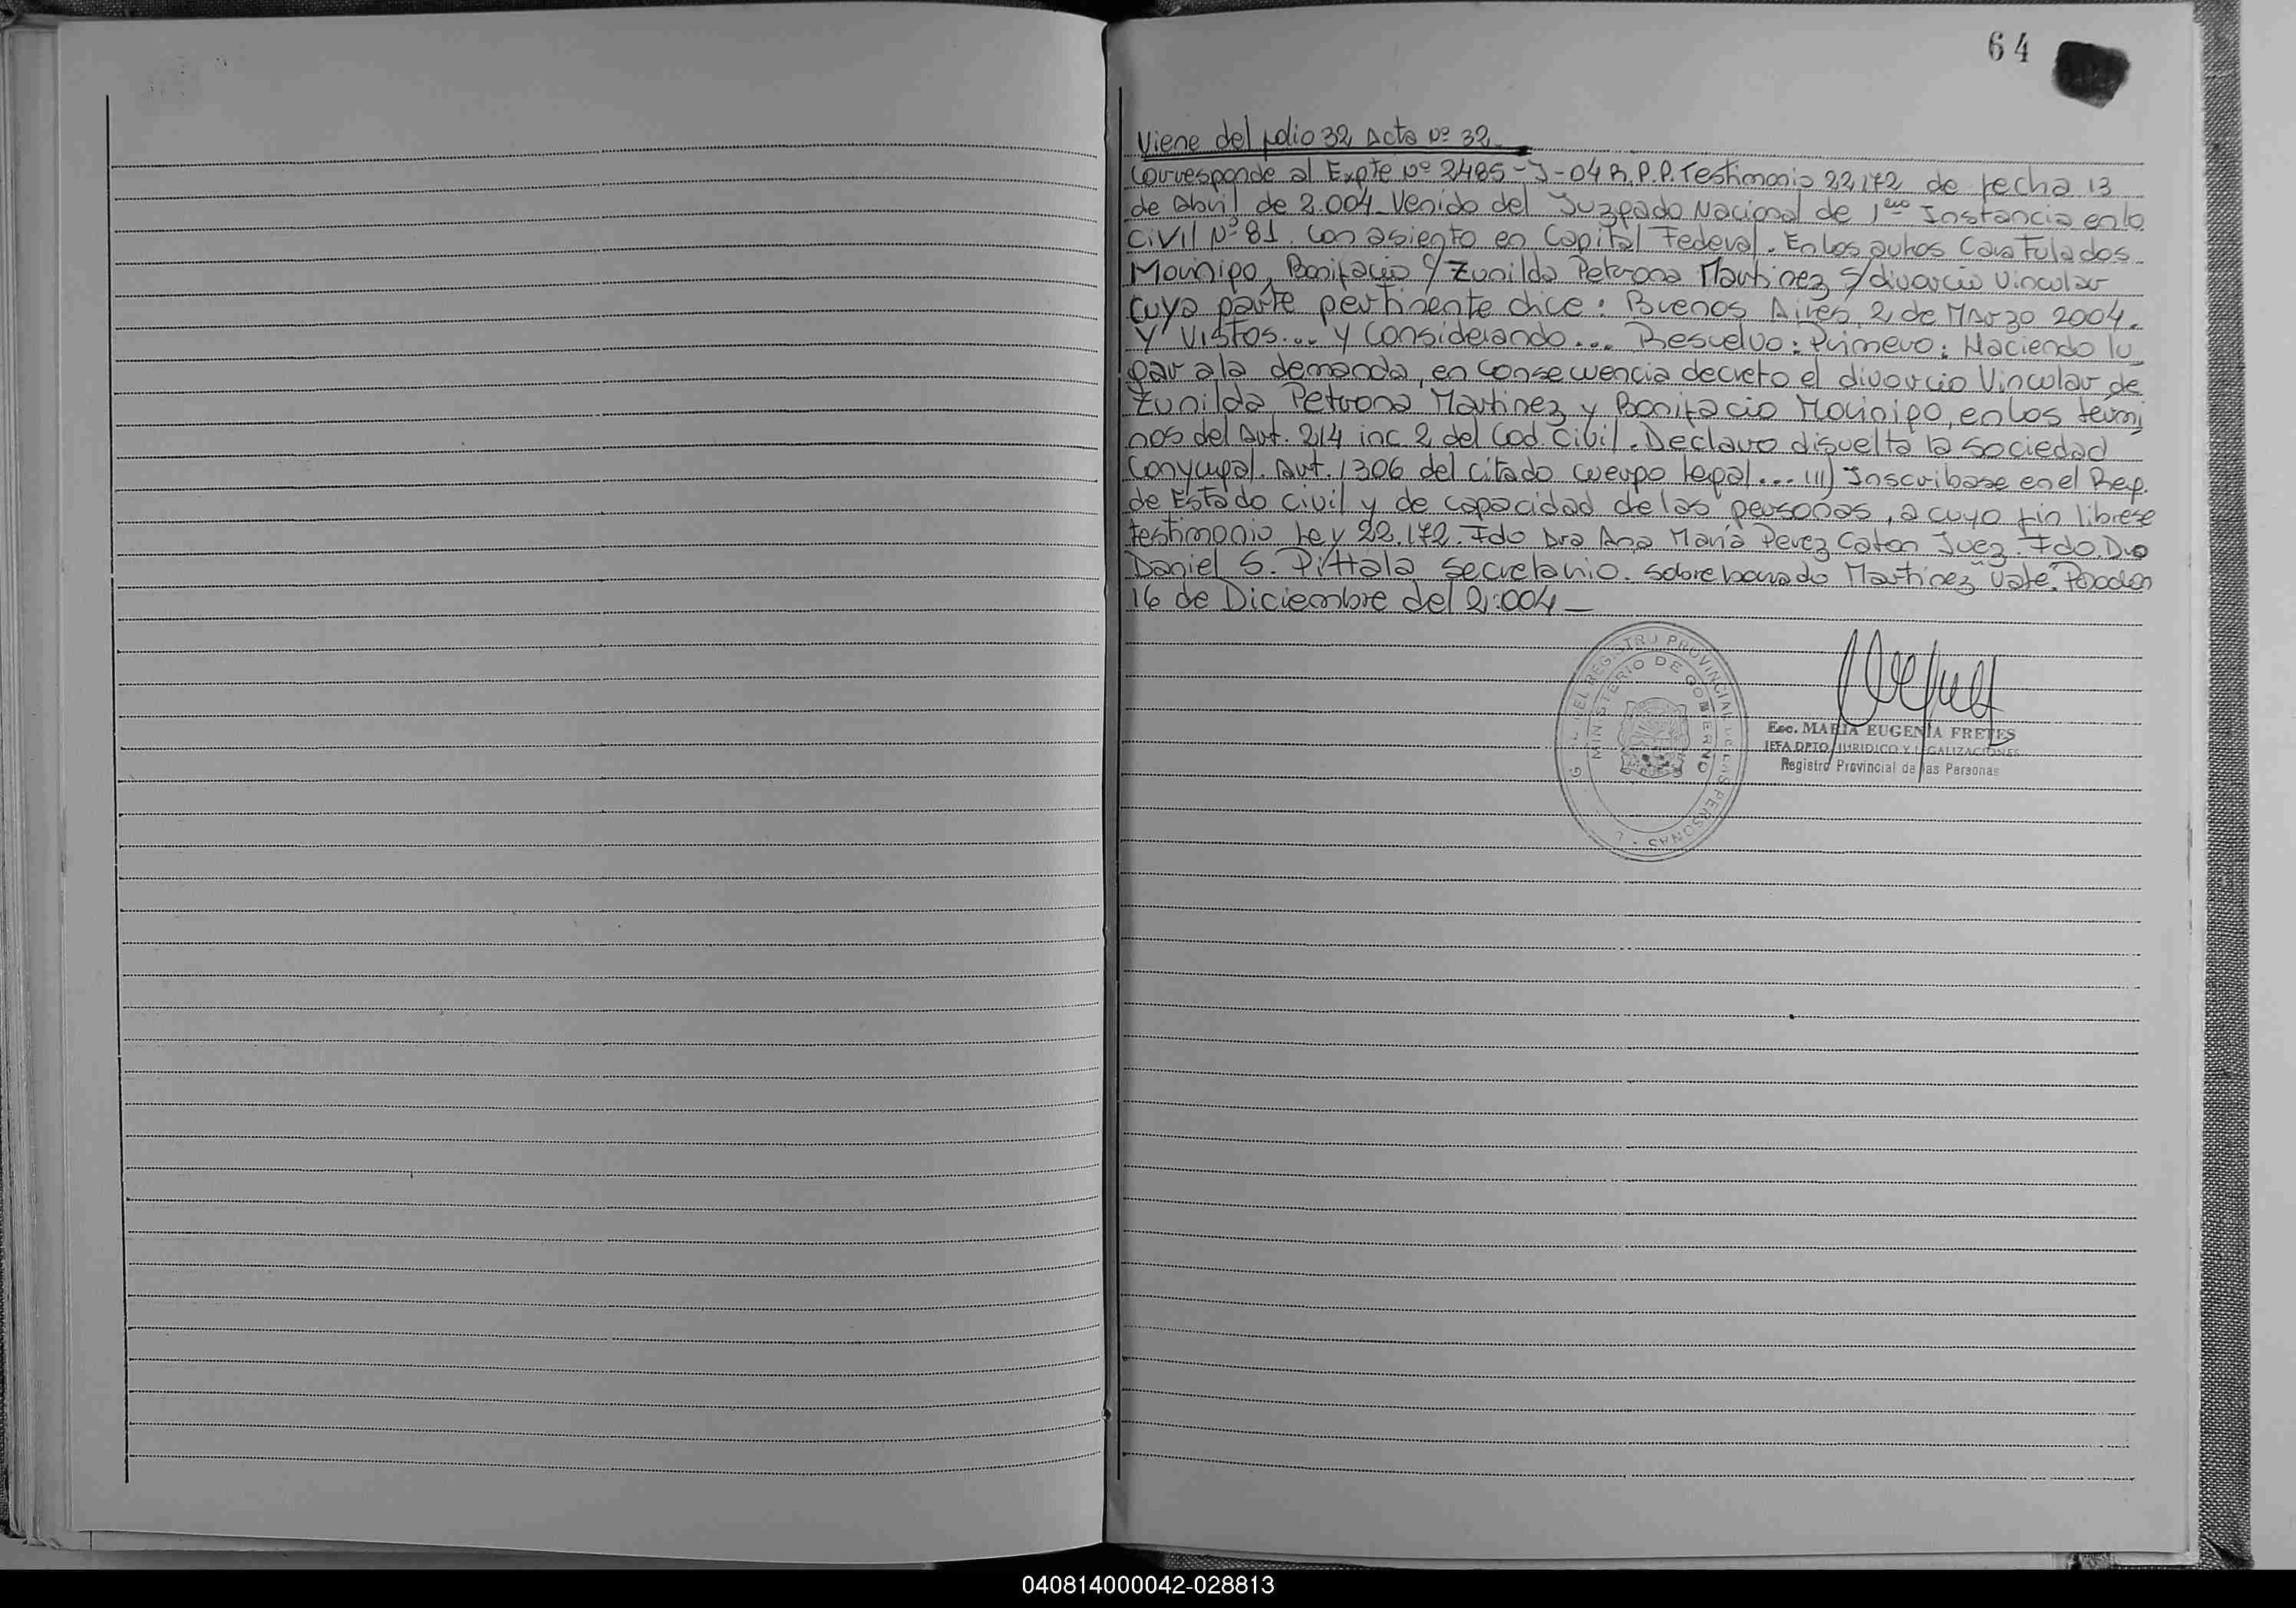 64
Viene del folio 32 Acta Nº 32
Corresponde al Expte Nº 2485-J-04 R.P.P. Testimonio 22172 de fecha 13
de abril de 2.004. Venido del Juzgado Nacional de 1era Instancia en lo
Civil Nº 81. Con asiento en Capital Federal. En los autos Caratulados
Bonifacio c/ Zunilda Petrona Martinez s/ divorcio Vincular
Cuya parte pertinente dice: Buenos Aires, 2 de Marzo 2004.
Y Vistos... y Considerando... Resuelvo: Primero: Haciendo lu
gar a la demanda, en consecuencia decreto el divorcio Vincular de
Zunilda Petrona Martinez y Bonifacio en los termi
nos del Art. 214 inc 2 del Cod. Civil. Declaro disuelta la sociedad
Conyugal. Art. 1306 del citado cuerpo legal... III) Inscribase en el Reg.
de Estado Civil y de capacidad de las personas, a cuyo fin librese
testimonio Ley 22.172. Fdo Dra Ana María Perez Caton Juez. Fdo. Dro
Daniel S. Pittala secretario. sobreborrado "Martinez" Vale. Posadas
16 de Diciembre del 2.004
DEL REGISTRO PROVINCIAL DE LAS PERSONAS
MINISTERIO DE GOBIERNO
Esc. MARIA EUGENIA FRETES
JEFA DPTO. JURIDICO Y LEGALIZACIONES
Registro Provincial de las Personas
040814000042-028813